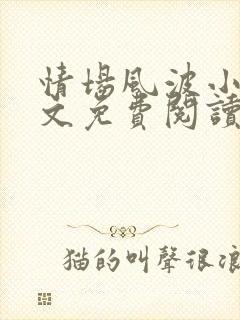 情場風波小
文免費閱讀
猫的叫聲很浪